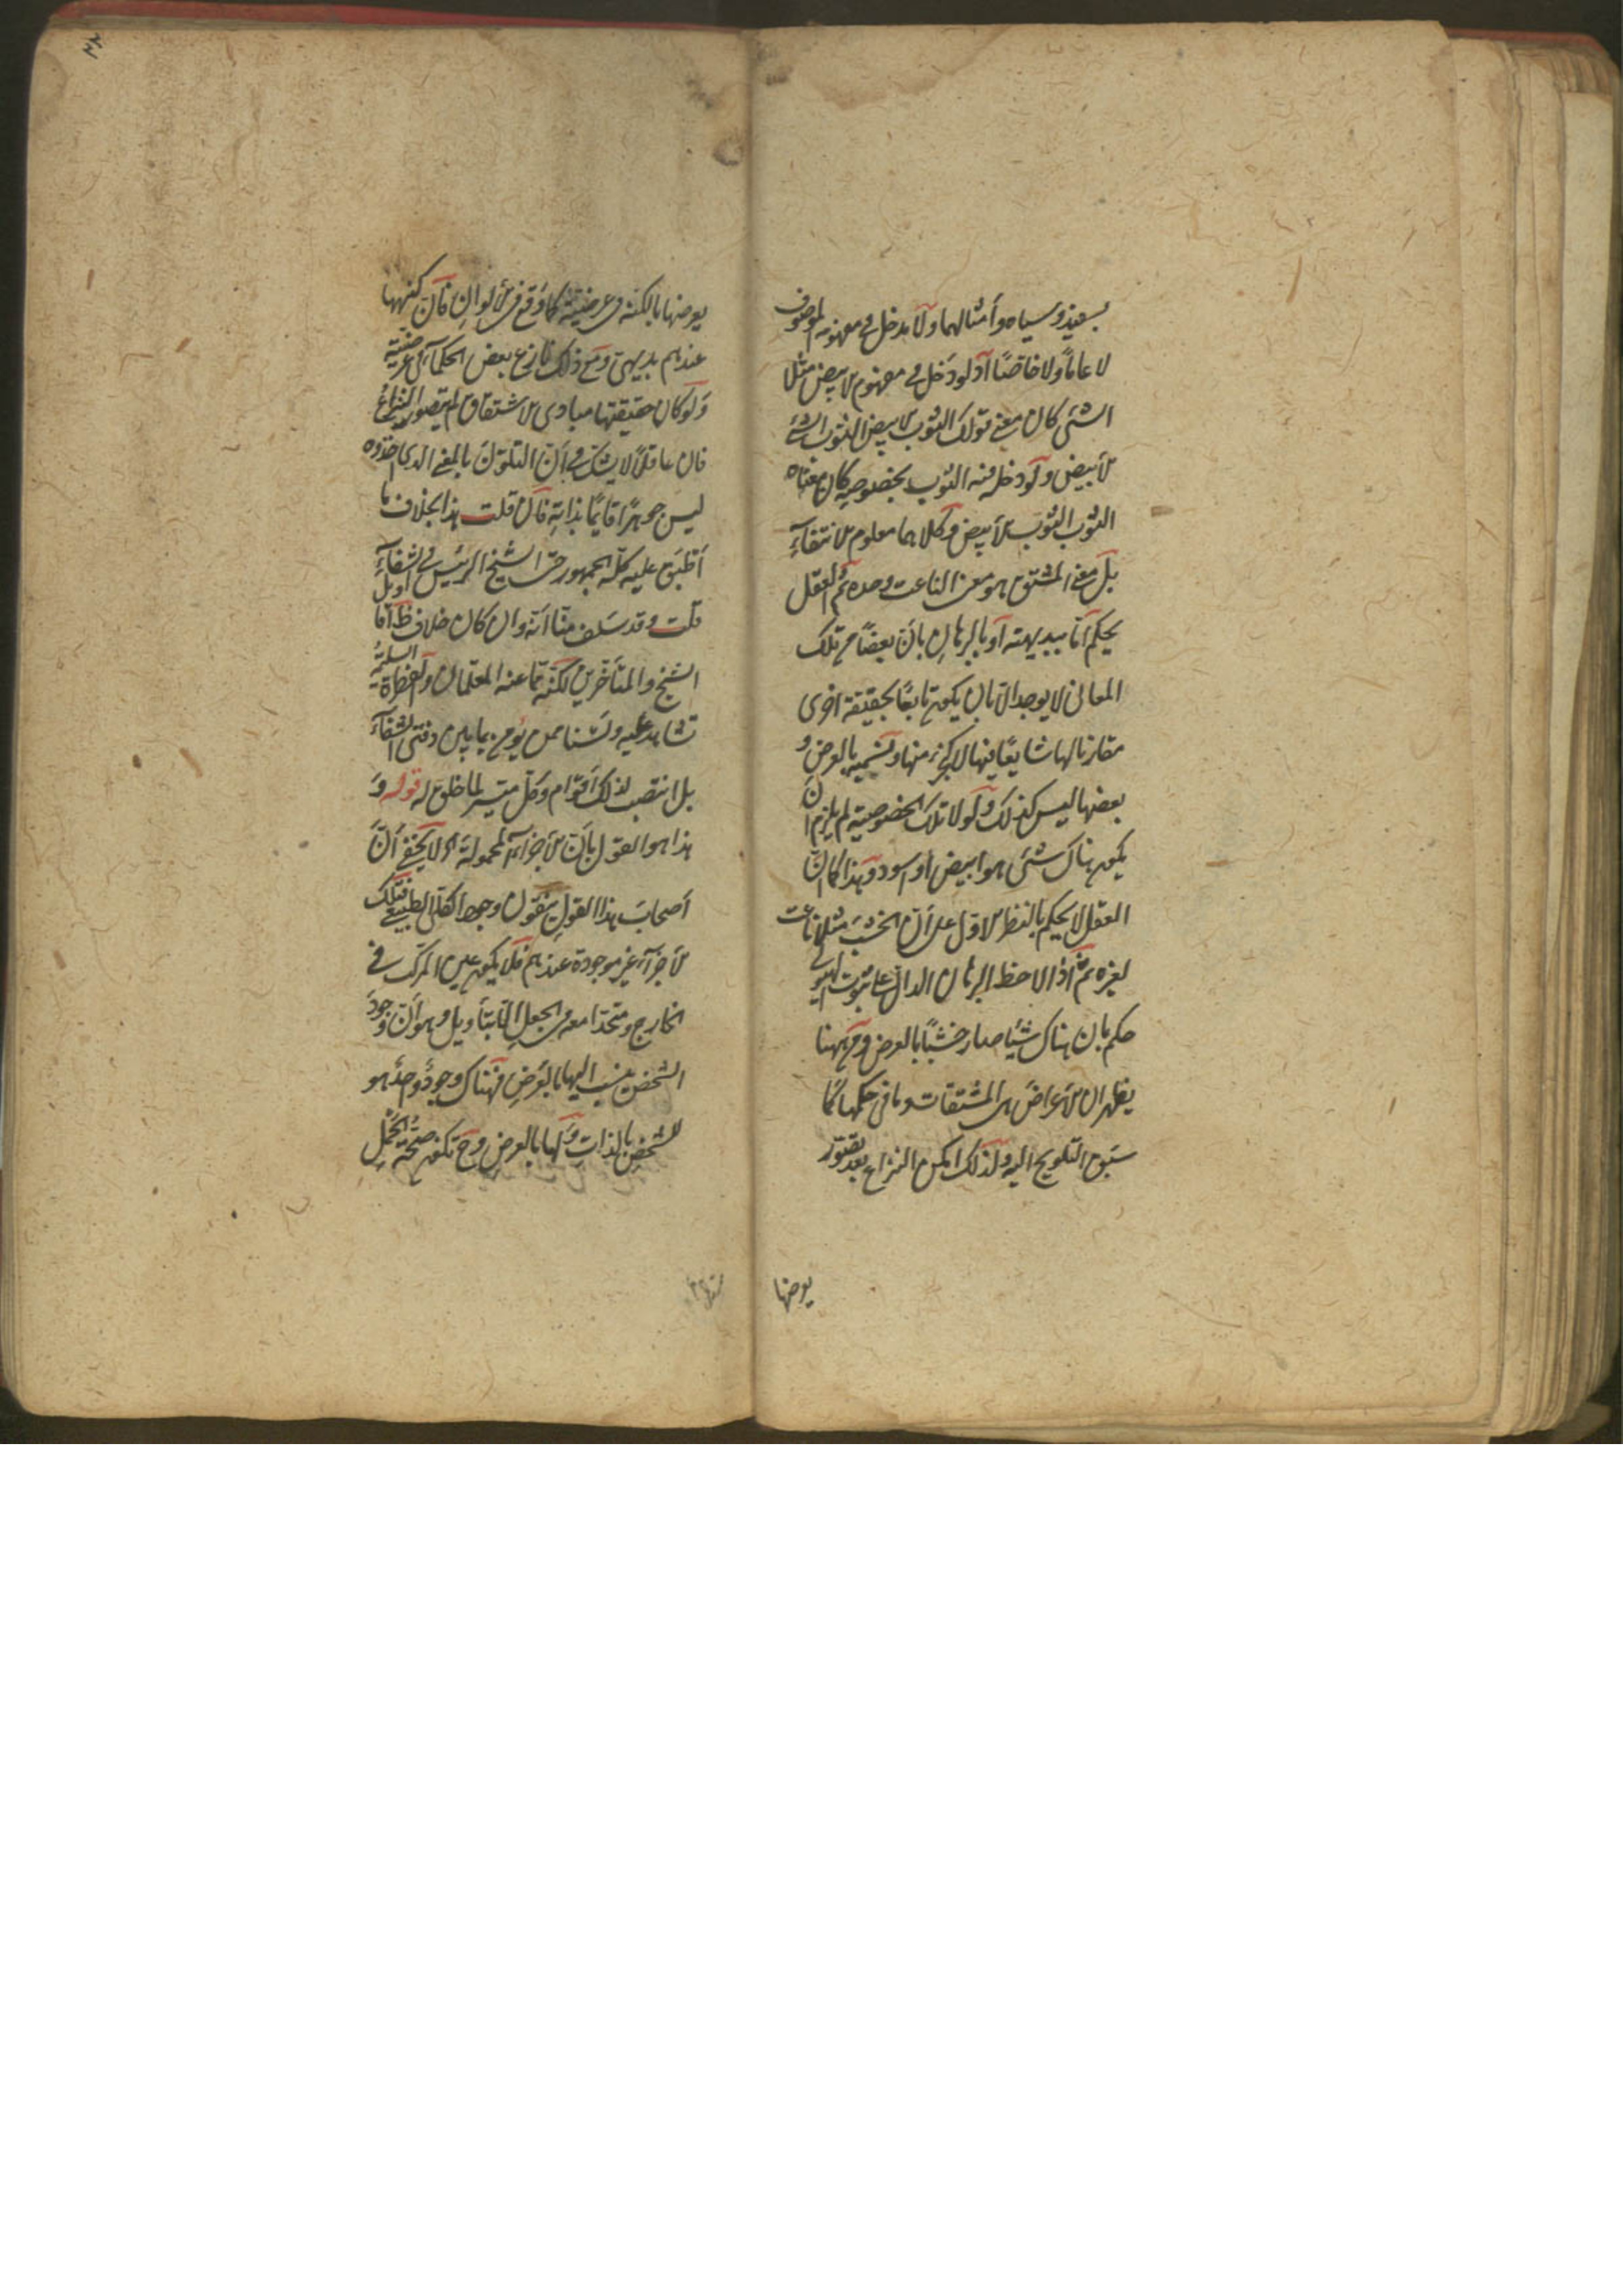 بسفيد و سياه و أمثالهما ولا يدخل في مفهومه الموصوف
لا عامًا ولا خاصًا اذ لو دخل في مفهوم الابيض مثلا
الشئ كان معنى قولك الثوب الابيض الثوب الشئ
الأبيض ولو دخل فيه الثوب بخصوصه كان معناه
الثوب الثوب الأبيض وكلاهما معلوم الانتفاء
بل معنى المشتق هو معنى الناعت وحده ثم العقل
يحكم اما ببديهته أو بالبرهان بأن بعضًا من تلك
المعاني لا يوجد الا بان يكون تابعًا لحقيقة اخرى
مقارنا لها شايعًا فيها لا كجزء منها ونسميه بالعرض و
بعضها ليس كذلك ولولا تلك الخصوصية لم يلزم ان
يكون هناك شئ هو ابيض أو اسود وهذا كما انّ
العقل لا يحكم بالنظر الاول على أن الخشب مثلا ناعت
لغيره ثمّ اذا لاحظ البرهان الدال على ثبوت الهيولى
حكم بان هناك شيئا صار خشبًا بالعرض ومن ههنا
يظهر ان الأعراض هي المشتقات وما في حكمها كما
سبق التلويح اليه ولذلك امكن النزاع بعد تصوّر
يعرضها
يعرضها بالكنه في عرضيته كما وقع في الألوان فان كنهها
عندهم بديهي ومع ذلك نازع بعض الحكماء في عرضيته
ولو كان حقيقتها مبادي الاشتقاق لم يتصور النزاع
فان عاقلًا لا يشك في أن التلوّن بالمعنى الذي اخذوه
ليس جوهرًا قايمًا بذاته فان قلت هذا بخلاف ما
أطبق عليه كلّه الجمهور حتى الشيخ الرئيس في الشفاء
قلت وقد سلف منّا انّه وان كان خلاف ظ اقاويل
الشيخ والمتأخرين لكنّه ممّا عنه المعلمان والفطرة السليمة
تشاهد عليه ولسنا ممن يؤمن بما بين دفتي الشفاء
بل انتصب لذلك أقوام وكل ميسر لما خلق له قوله و
هذا هو القول بأن الأجزاء المحمولة اه لا يخفى أنّ
أصحاب هذا القول ينفون وجود الكلي الطبيعي فتلك
الأجزاء غير موجودة عندهم فلا يكون عين المركب في
الخارج ومتحدا معه في الجعل الا بتأويل وهو أن وجود
الشخص ينسب اليها بالعرض فهناك وجود واحد هو
للشخص بالذات ولها بالعرض وح تكون صحّة الحمل